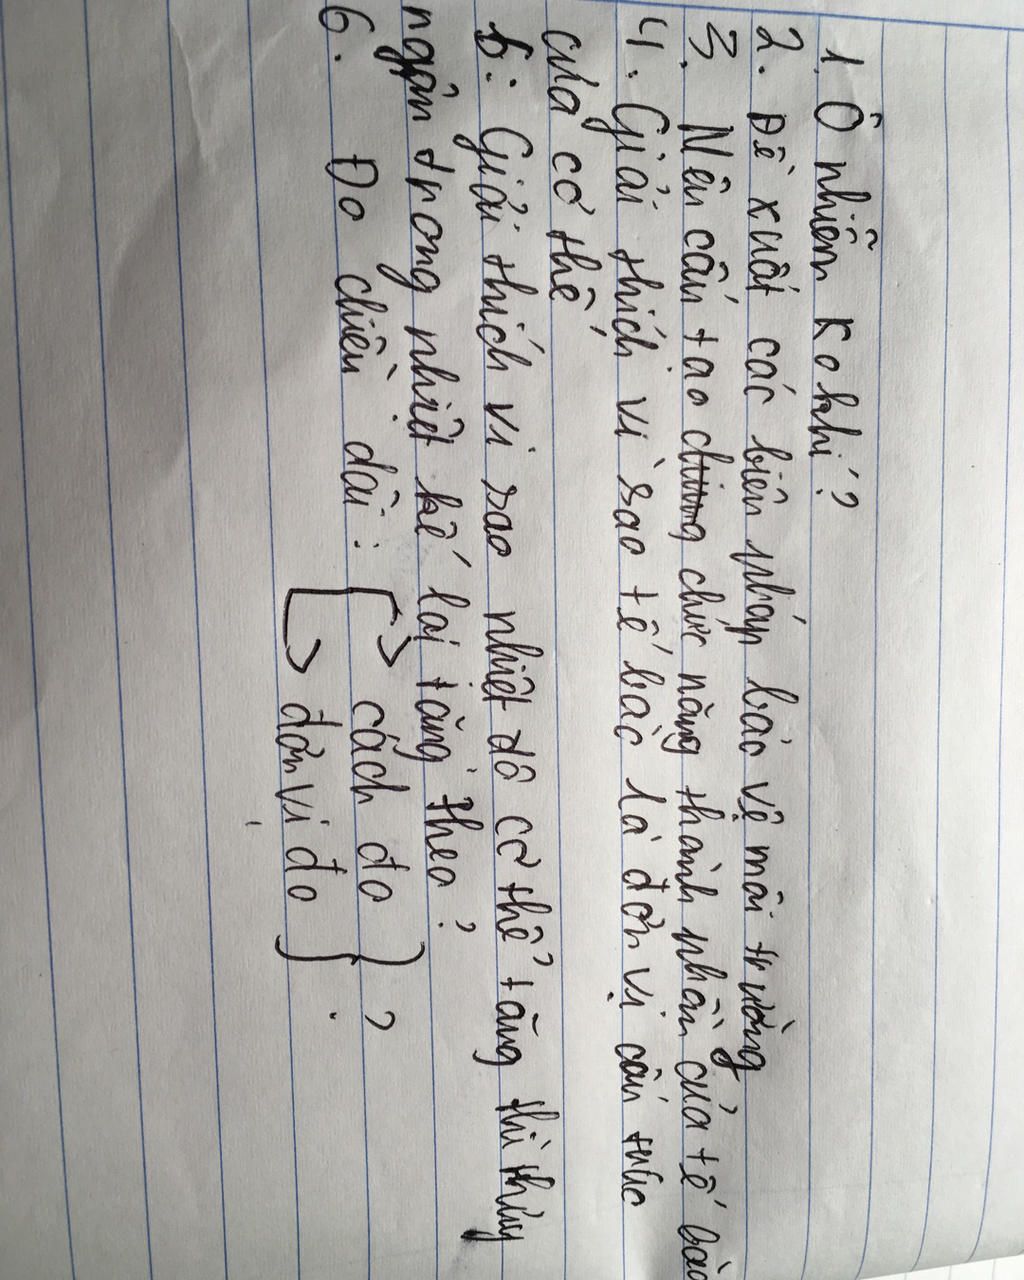 1. Ô nhiễm ko khí?
2. Đề xuất các biện pháp bảo vệ môi trường
3. Nêu cấu tạo chức năng thành phần của tế bào
4. Giải thích vì sao tế bào là đơn vị cấu trúc
của cơ thể
5: Giải thích vì sao nhiệt độ cơ thể tăng thì thủy
ngân trong nhiệt kế lại tăng theo?
6. Đo chiều dài: cách đo ?
đơn vị đo